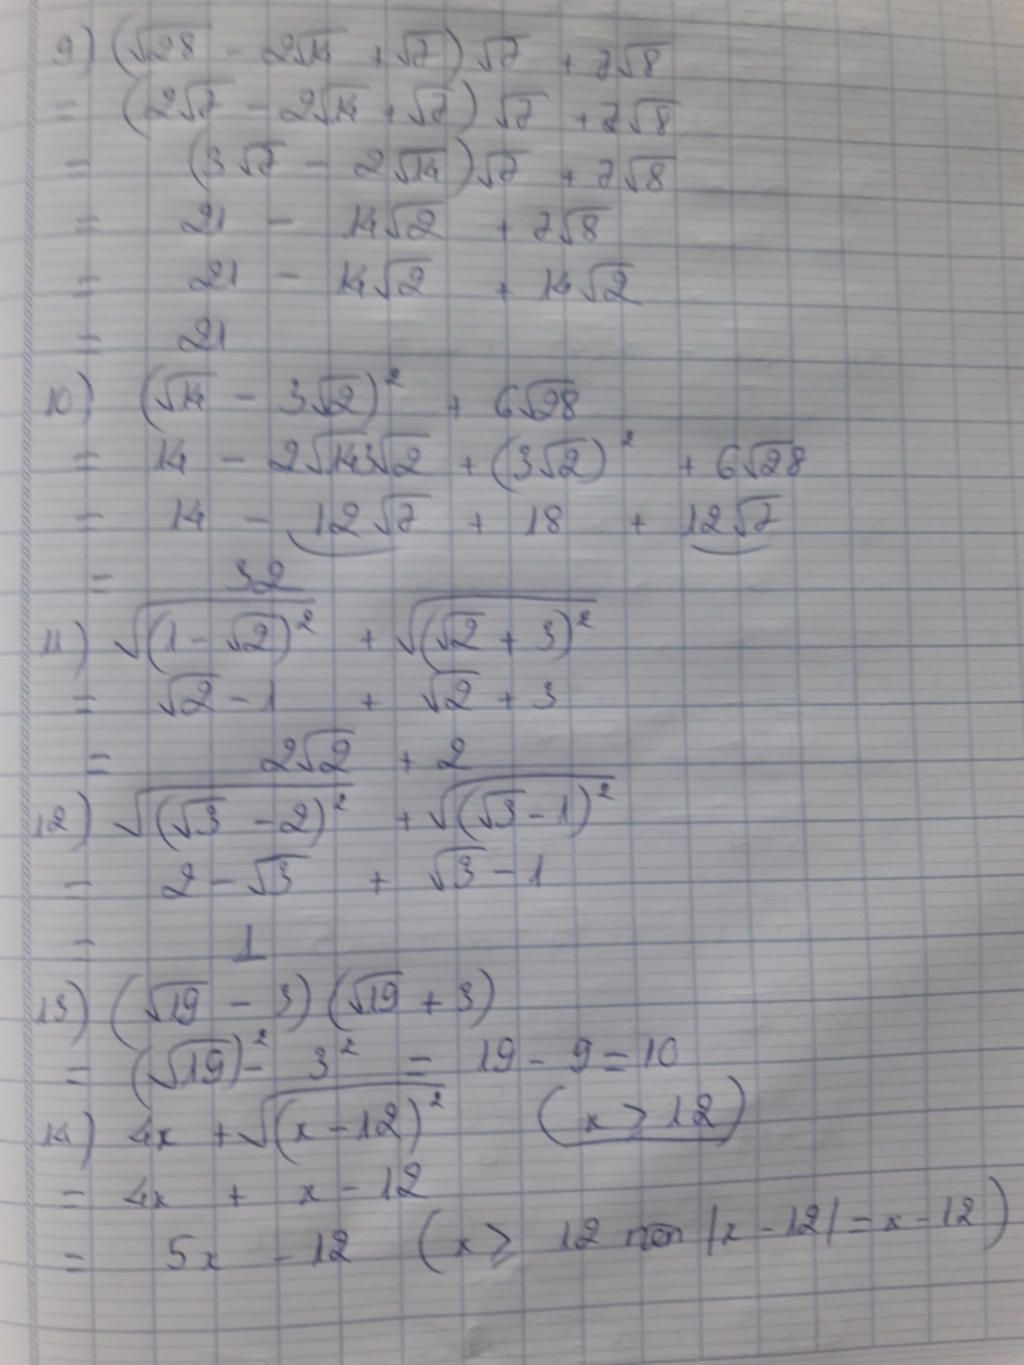 9) (√28 - 2√14 + √7) √7 + 7√8
= (2√7 - 2√14 + √7) √7 + 7√8
= (3√7 - 2√14) √7 + 7√8
= 21 - 14√2 + 7√8
= 21 - 14√2 + 14√2
= 21
10) (√14 - 3√2)² + 6√28
= 14 - 2√14 3√2 + (3√2)² + 6√28
= 14 - 12√7 + 18 + 12√7
= 32
11) √(1 - √2)² + √(√2 + 3)²
= √2 - 1 + √2 + 3
= 2√2 + 2
12) √(√3 - 2)² + √(√3 - 1)²
= 2 - √3 + √3 - 1
= 1
13) (√19 - 3) (√19 + 3)
= (√19)² - 3² = 19 - 9 = 10
14) 4x + √(x - 12)² (x ≥ 12)
= 4x + x - 12
= 5x - 12 (x ≥ 12 nên |x - 12| = x - 12)